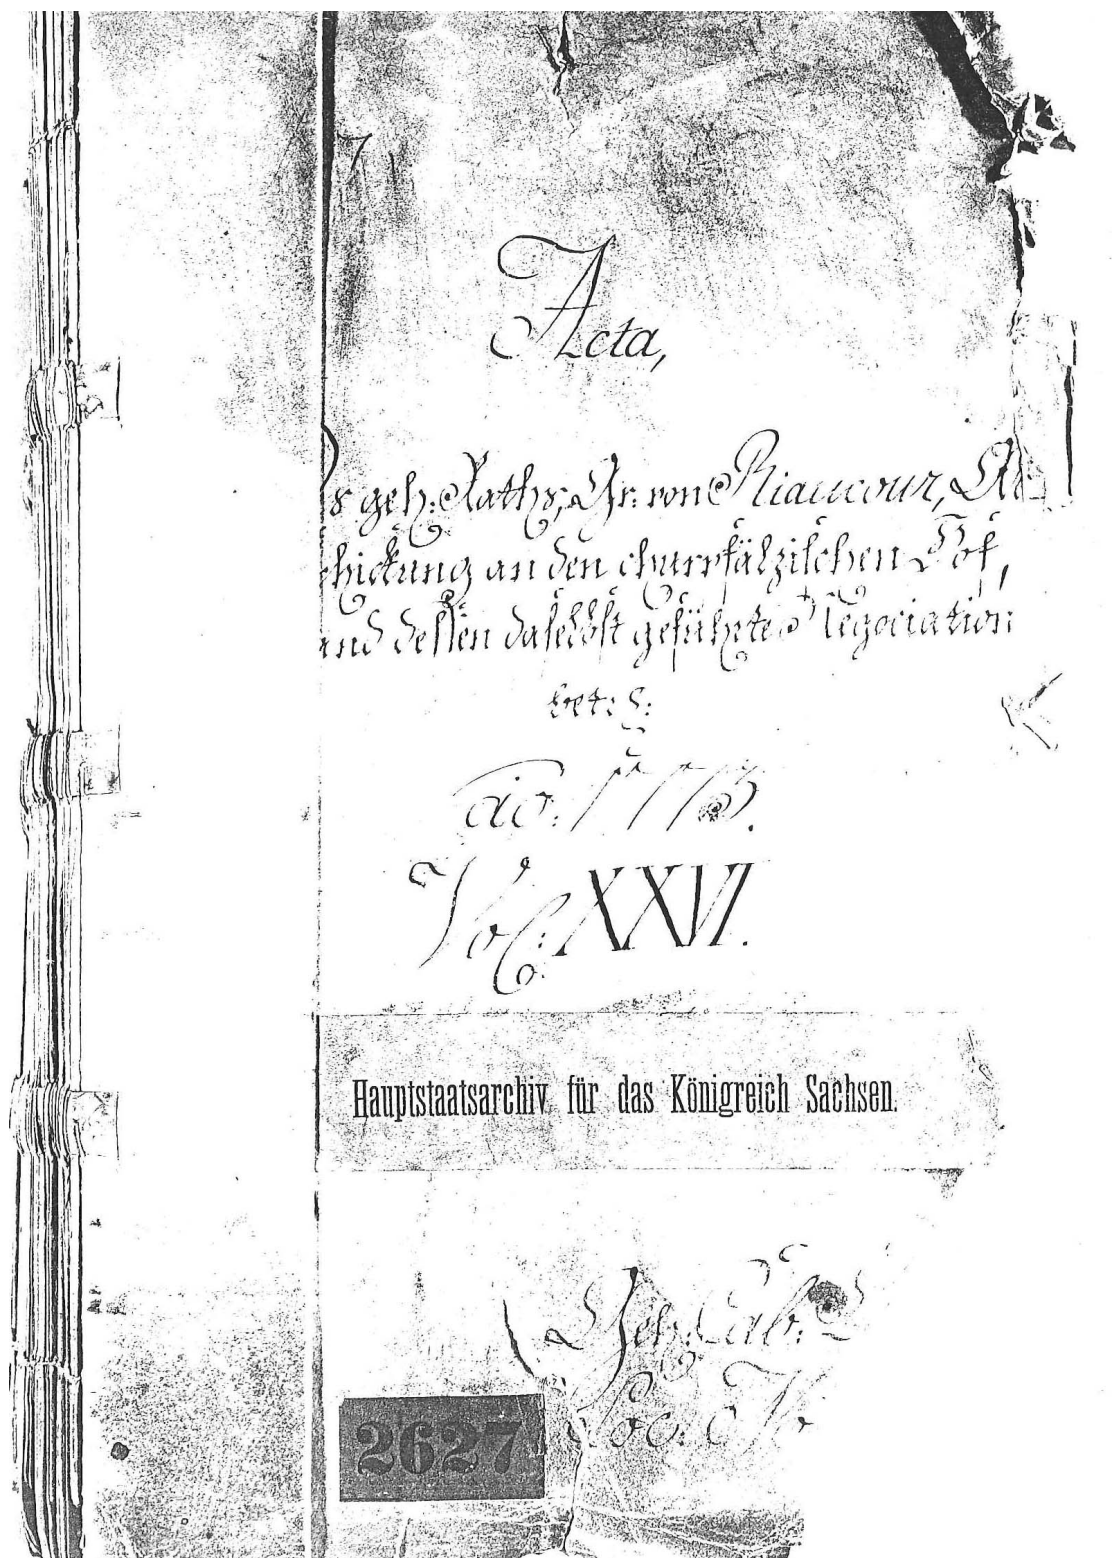 Acta,
s geh: Raths, Gr: von Riaucour, A
hickung an den churpfälzischen Hof,
und dessen daselbst geführte Negociation
betr:
ao: 1773.
Vol: XXVI.
Hauptstaatsarchiv für das Königreich Sachsen.
Geh: Cab:
Loc: N
2627